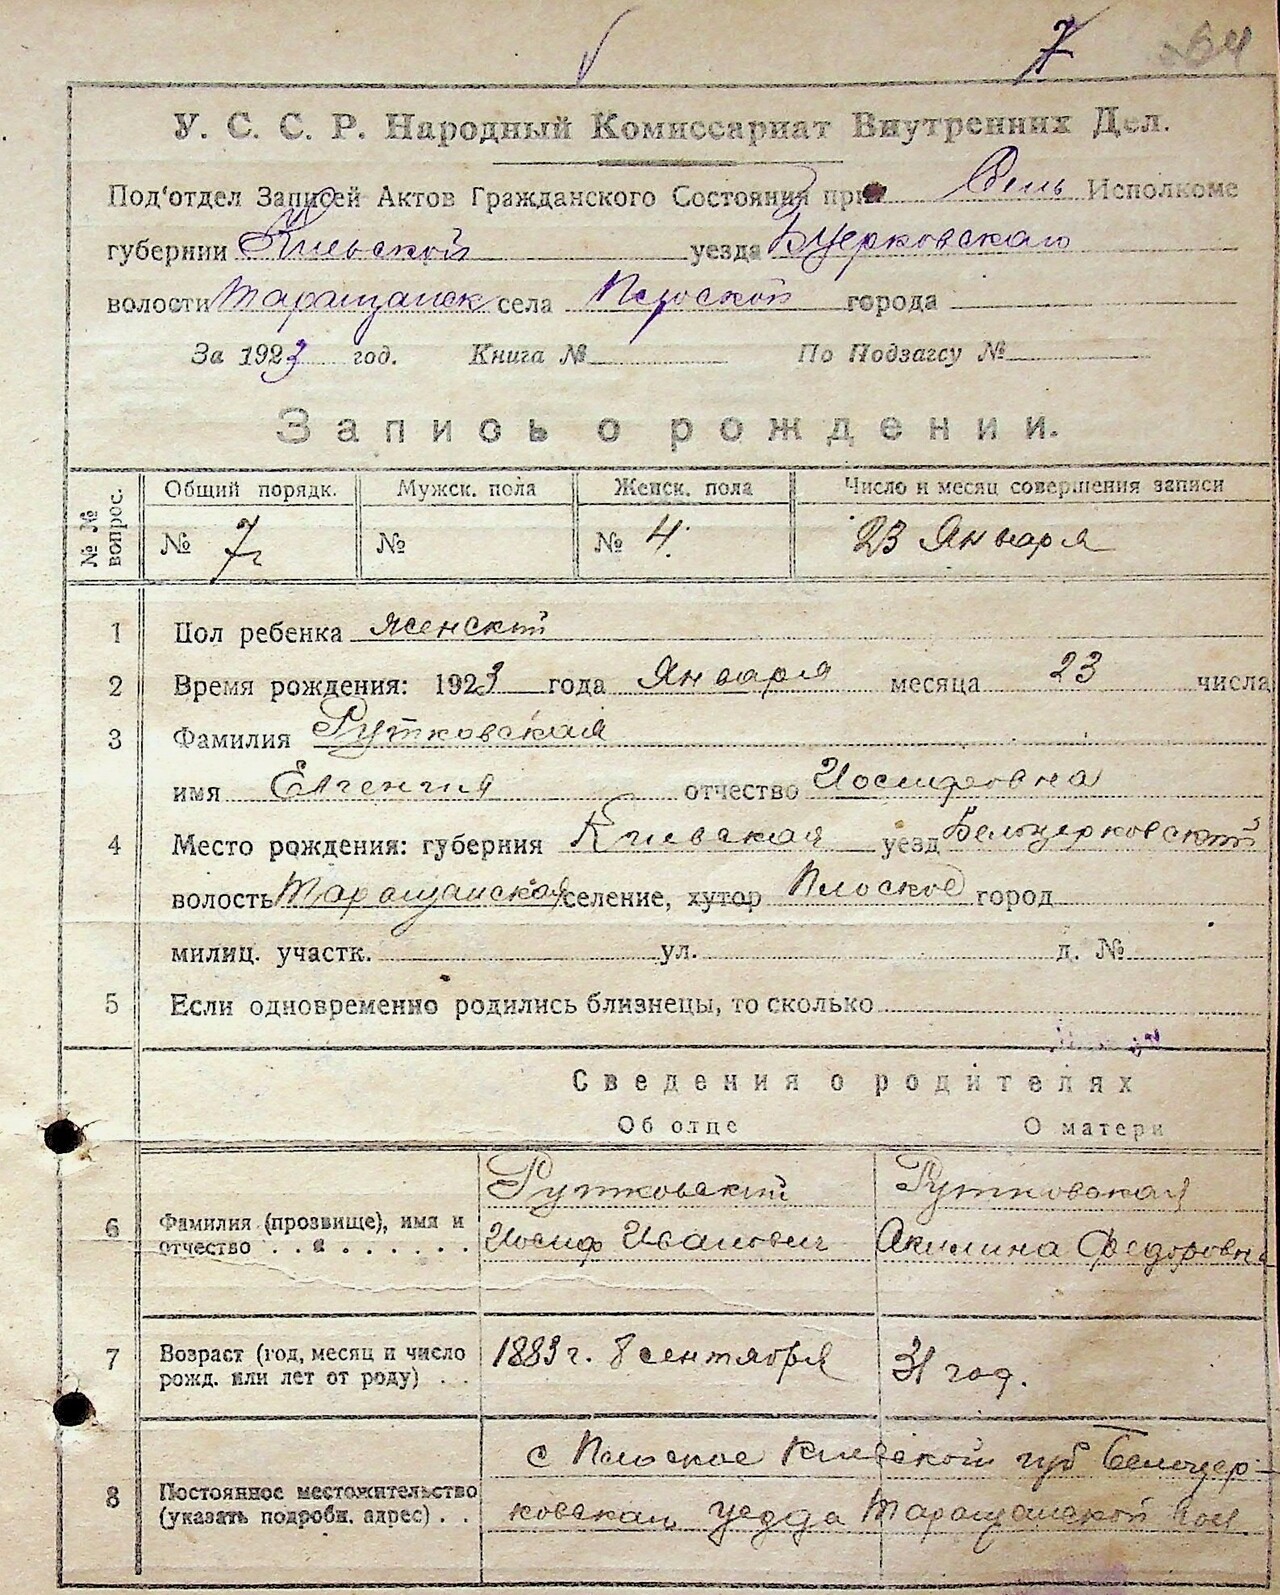 7
У. С. С. Р. Народный Комиссариат Внутренних Дел.
Под‘отдел Записей Актов Гражданского Состояния при Сель Исполкоме
губернии Киевской уезда Бцерковскаго
волости Таращанск села Плоской города
За 1923 год. Книга № По Подзагсу №
Запись о рождении.
№ № вопрос. Общий порядк. Мужск. пола Женск. пола Число и месяц совершения записи
№ 7 № № 4. 23 Января
1 Пол ребенка женский
2 Время рождения: 1923 года Января месяца 23 числа
3 Фамилия Рутковская
имя Евгения отчество Иосифовна
4 Место рождения: губерния Киевская уезд Белоцерковский
волость Таращанская селение, хутор Плоское город
милиц. участк. ул. д. №
5 Если одновременно родились близнецы, то сколько
Сведения о родителях
Об отце О матери
Рутковский Рутковская
6 Фамилия (прозвище), имя и
отчество . . . . . . . . . Иосиф Иванович Акилина Федоровна
7 Возраст (год, месяц и число
рожд. или лет от роду) . . 1883 г. 8 сентября 31 год.
с Плоское Киевской губ Белоцер-
8 Постоянное местожительство
(указать подробн. адрес) . . ковскаг уезда Таращанской